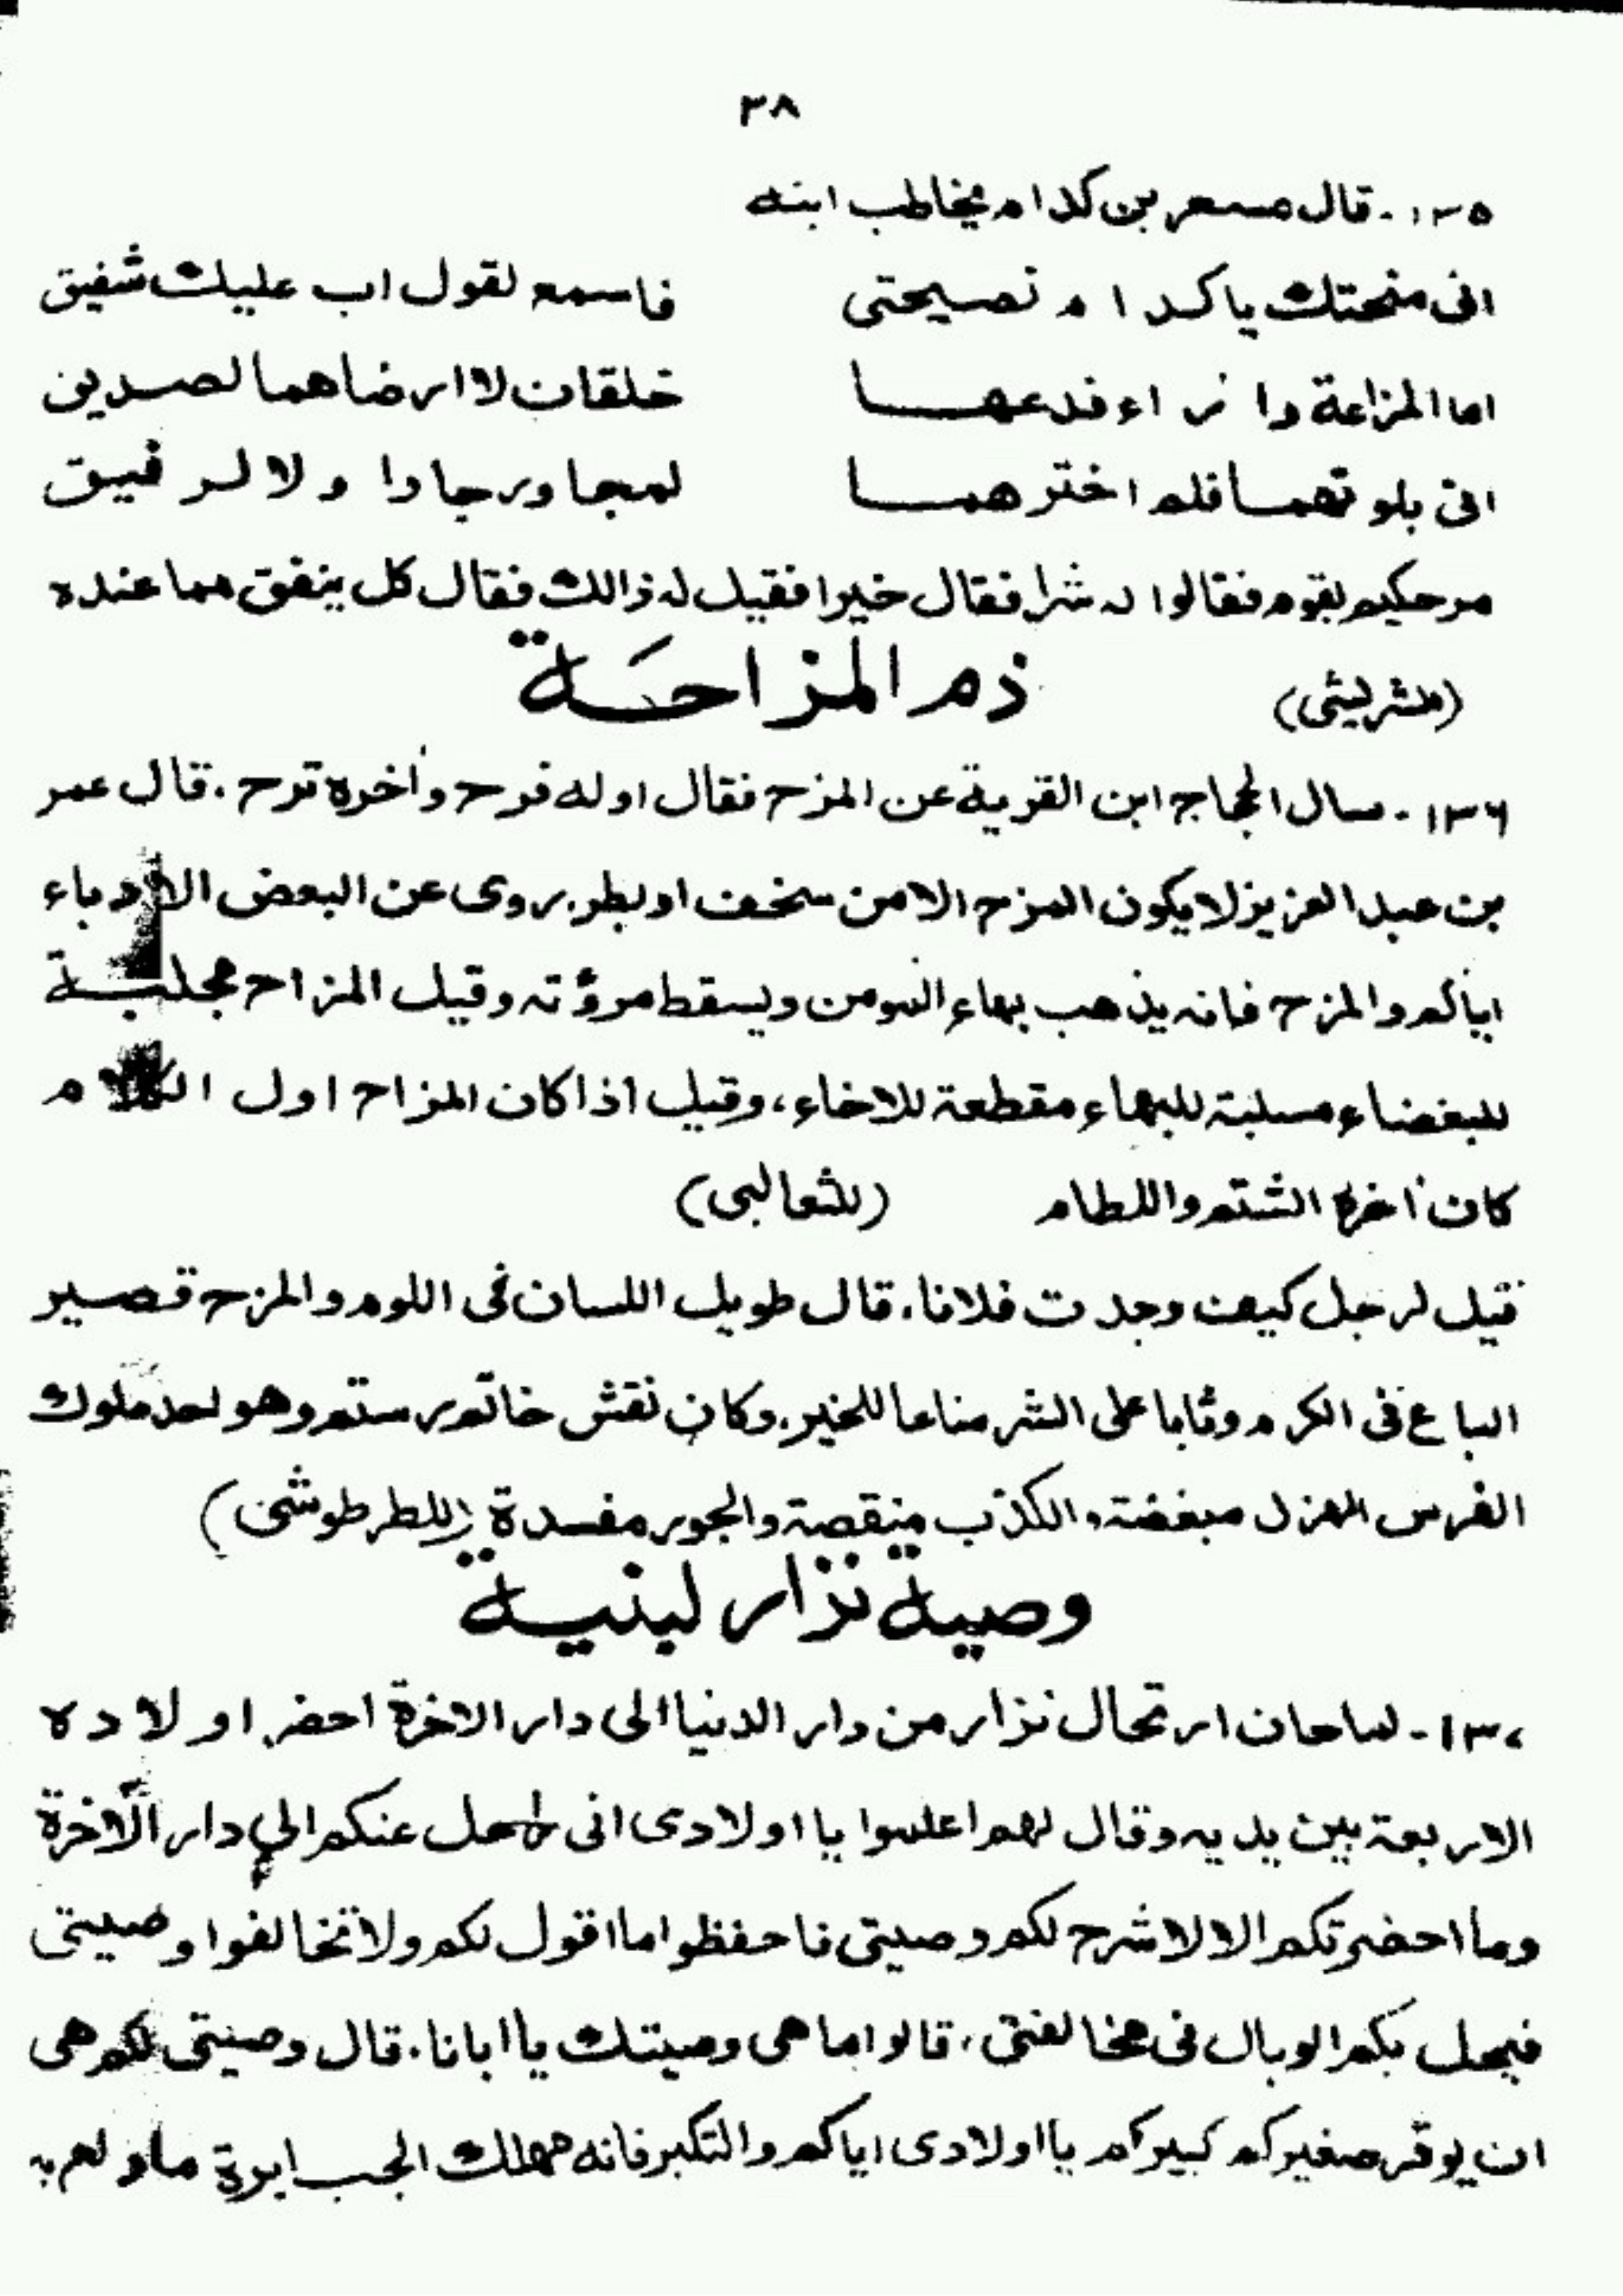 ٣٨
١٣٥ - قال مسعر بن كدام يخاطب ابنه
انى منحتك ياكدام نصيحتى فاسمع لقول اب عليك شفيق
اما المزاعة وا فدعهـا خلقان لا ارضاهما لصديق
انى بلوتهما فلم اخترهمـا لمجاور جاوا ولا لرفيق
مر حكيم بقوم فقالوا له شرا فقال خيرا فقيل له ذالك فقال كل ينفق مما عنده
(للشريشى) ذم المزاحة
١٣٦ - سال الحجاج ابن القرية عن المزح فقال اوله فرح وأخره ترح. قال عمر
بن عبد العزيز لا يكون المزح الا من سخف او بطر. يروى عن البعض الادباء
اياكم والمزح فانه يذهب بهاء المومن ويسقط مروؤته وقيل المزاح مجلبة
للبغضاء مسلبة للبهاء مقطعة للاخاء، وقيل اذا كان المزاح اول الكلام
كان أخره الشتم واللطام (للثعالبى)
قيل لرجل كيف وجدت فلانا. قال طويل اللسان فى اللوم والمزح قصير
الباع فى الكرم وثابا على الشر مناعا للخير. وكان نقش خاتم رستم وهو احد ملوك
الفرس الهزل مبغضة والكذب منقصة والجور مفسدة (للطرطوشى)
وصية نزار لبنية
١٣٧ - لما حان ارتحال نزار من دار الدنيا الى دار الاخرة احضر اولاده
الاربعة بين يديه وقال لهم اعلموا يا اولادى انى راحل عنكم الى دار الآخرة
وما احضرتكم الا لاشرح لكم وصيتى فاحفظوا ما اقول لكم ولا تخالفوا وصيتى
فيحل بكم الوبال فى مخالفتى، قالوا ما هى وصيتك يا ابانا. قال وصيتى لكم هى
ان يوقر صغيركم كبيركم يا اولادى اياكم والتكبر فانه مهلك الجبابرة